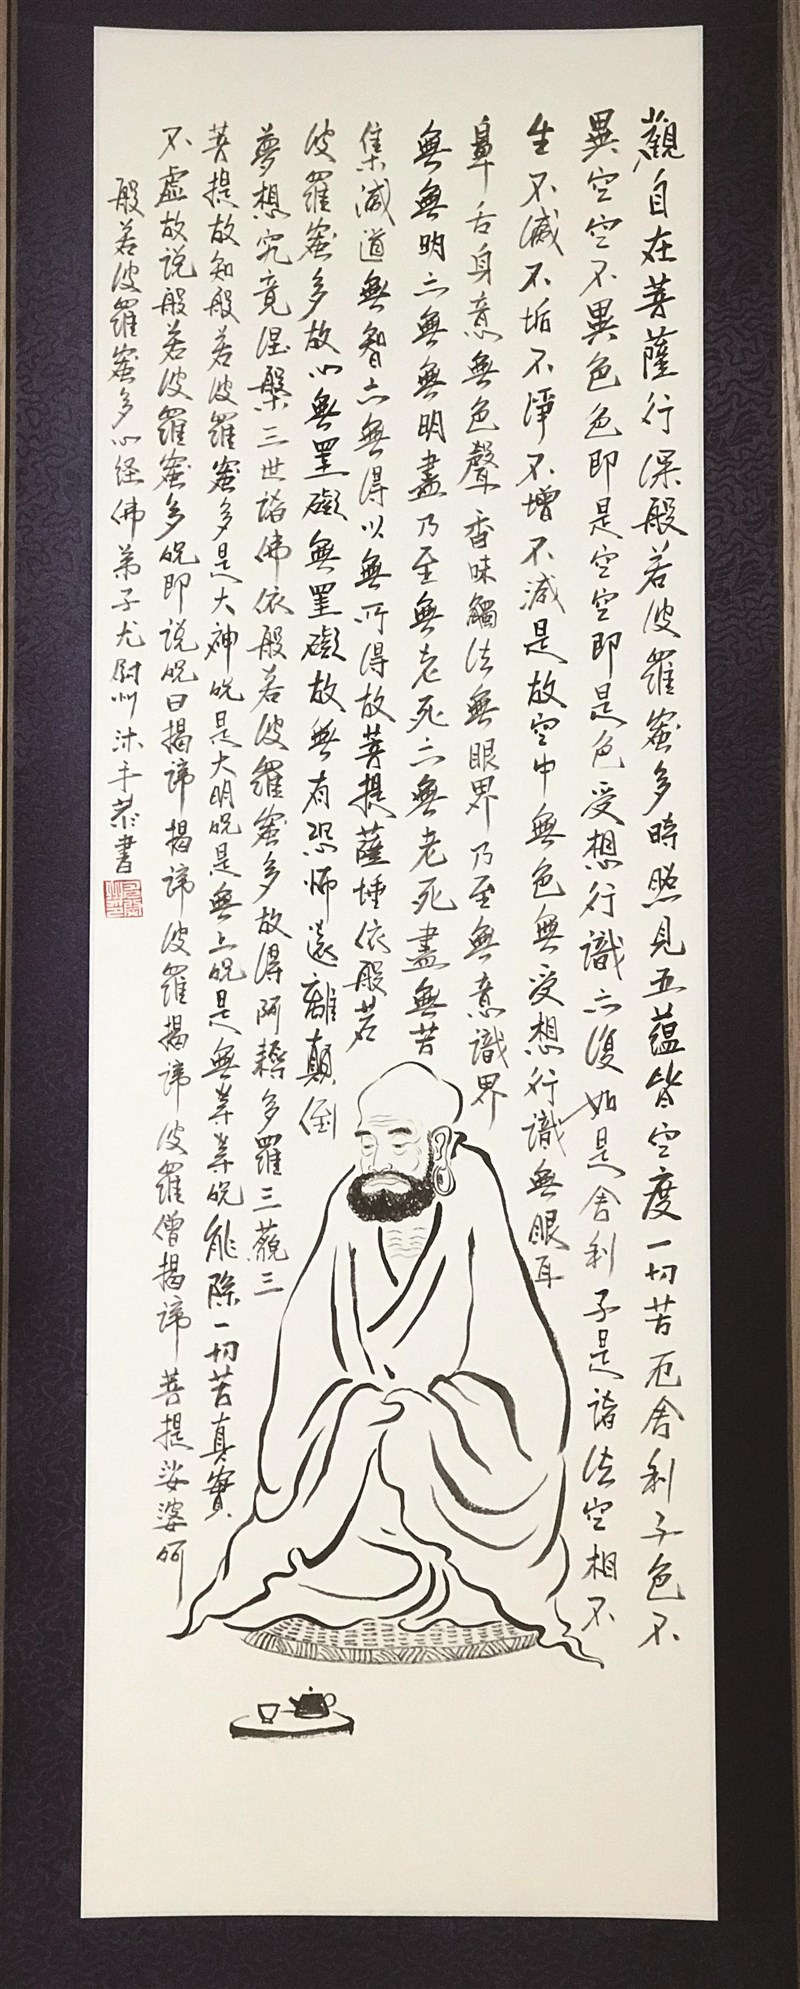 觀自在菩薩行深般若波羅蜜多時照見五蘊皆空度一切苦厄舍利子色不
異空空不異色色即是空空即是色受想行識亦復如是舍利子是諸法空相不
生不滅不垢不淨不增不減是故空中無色無受想行識無眼耳
鼻舌身意無色聲香味觸法無眼界乃至無意識界
無無明亦無無明盡乃至無老死亦無老死盡無苦
集滅道無智亦無得以無所得故菩提薩埵依般若
波羅蜜多故心無罣礙無罣礙故無有恐怖遠離顛倒
夢想究竟涅槃三世諸佛依般若波羅蜜多故得阿耨多羅三藐三
菩提故知般若波羅蜜多是大神咒是大明咒是無上咒是無等等咒能除一切苦真實
不虛故说般若波羅蜜多咒即说咒曰揭諦揭諦波羅揭諦波羅僧揭諦菩提娑婆訶
般若波羅蜜多心経佛弟子尤尉州沐手恭書